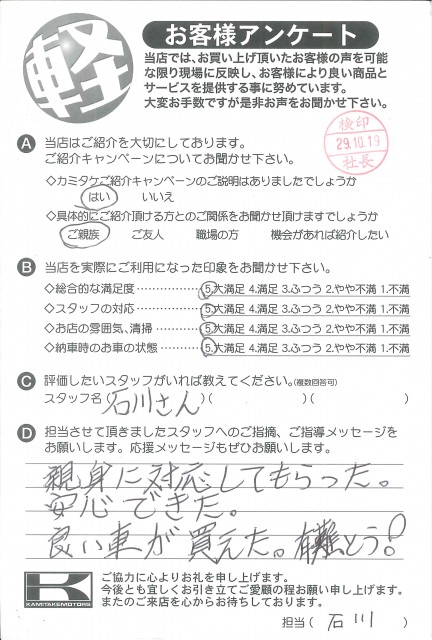 軽
お客様アンケート
当店では、お買い上げ頂いたお客様の声を可能
な限り現場に反映し、お客様により良い商品と
サービスを提供する事に努めています。
大変お手数ですが是非お声をお聞かせ下さい。
検印
29.10.19
社長
A 当店はご紹介を大切にしております。
ご紹介キャンペーンについてお聞かせ下さい。
◇カミタケご紹介キャンペーンのご説明はありましたでしょうか
はい いいえ
◇具体的にご紹介頂ける方とのご関係をお聞かせ頂けますでしょうか
ご親族 ご友人 職場の方 機会があれば紹介したい
B 当店を実際にご利用になった印象をお聞かせ下さい。
◇総合的な満足度 ……………… 5.大満足 4.満足 3.ふつう 2.やや不満 1.不満
◇スタッフの対応 ……………… 5.大満足 4.満足 3.ふつう 2.やや不満 1.不満
◇お店の雰囲気、清掃 ………… 5.大満足 4.満足 3.ふつう 2.やや不満 1.不満
◇納車時のお車の状態 ………… 5.大満足 4.満足 3.ふつう 2.やや不満 1.不満
C 評価したいスタッフがいれば教えてください。(複数回答可)
スタッフ名(石川さん)( )( )
D 担当させて頂きましたスタッフへのご指摘、ご指導メッセージを
お願いします。応援メッセージもぜひお願いします。
親身に対応してもらった。
安心できた。
良い車が買えた。有難とう!
K
KAMITAKEMOTORS
ご協力に心よりお礼を申し上げます。
今後とも宜しくお引き立てご愛顧の程お願い申し上げます。
またのご来店を心からお待ちしております。
担当( 石川 )